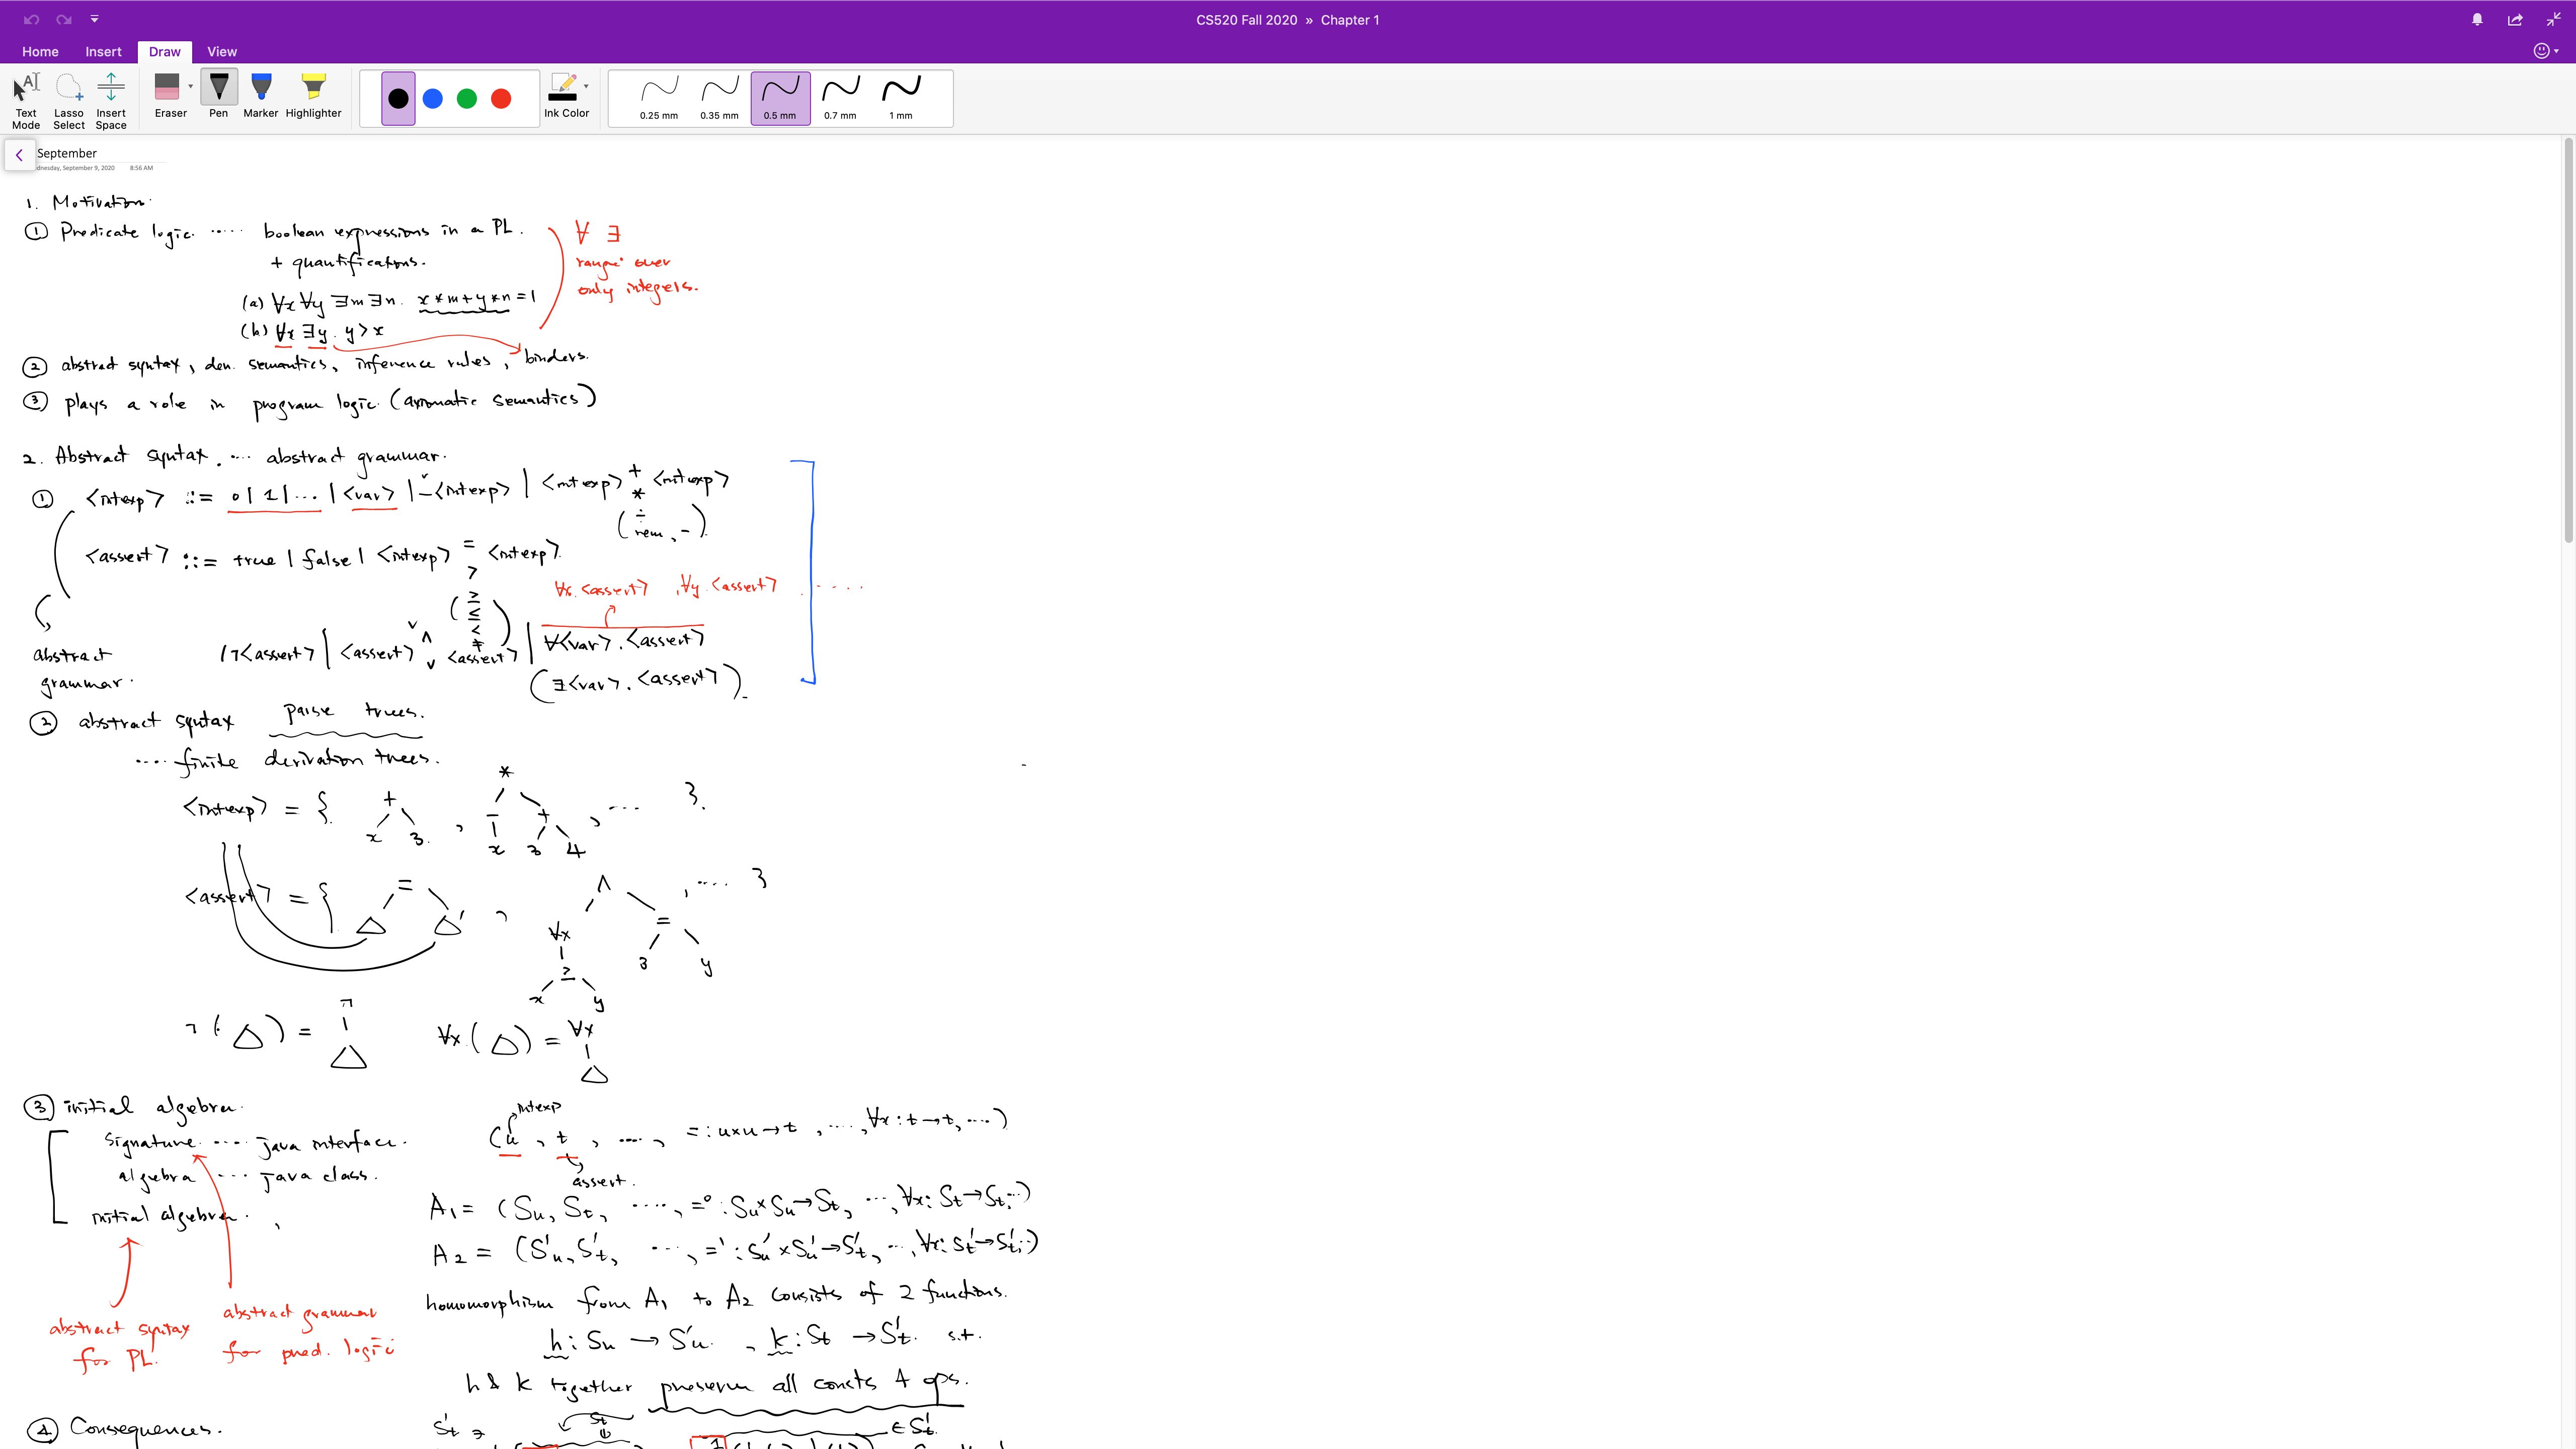 CS520 Fall 2020 » Chapter 1
Home Insert Draw View
Text Mode
Lasso Select
Insert Space
Eraser
Pen
Marker
Highlighter
Ink Color
0.25 mm
0.35 mm
0.5 mm
0.7 mm
1 mm
September
dnesday, September 9, 2020 8:56 AM
1. Motivation.
① Predicate logic ..... boolean expressions in a PL.
+ quantifications.
∀ ∃
range over
only integers.
(a) ∀x ∀y ∃m ∃n. x*m+y*n=1
(b) ∀x ∃y. y>x
② abstract syntax, den. semantics, inference rules, binders.
③ plays a role in program logic (axiomatic semantics)
2. Abstract syntax. ... abstract grammar.
① <intexp> ::= 0|1|... | <var> | -<intexp> | <intexp> + <intexp>
*
( ÷ rem, - )
<assert> ::= true | false | <intexp> = <intexp>
>
( ≥ ≤ < ≠ )
∀x.<assert> , ∀y.<assert> .....
| ¬<assert> | <assert> ∧ ∨ <assert> | ∀<var>.<assert>
(∃<var>.<assert>).
abstract
grammar.
② abstract syntax parse trees.
.... finite derivation trees.
<intexp> = { + x 3 , * - x + 3 4 , ... }.
<assert> = { = △ △' , ∧ ∀x ≥ x y = 3 y , .... }
¬(△) = ¬ △ ∀x.(△) = ∀x △
③ initial algebra.
signature .... java interface.
algebra ... java class.
initial algebra.
intexp
(u, t, ...., = : u×u→t, ...., ∀x : t→t, ....)
assert.
A₁ = (Su, St, ....., =° : Su×Su→St, ..., ∀x : St→St, ..)
A₂ = (S'u, S't, ..., =' : S'u×S'u→S't, .., ∀x : S't→S't, ..)
abstract syntax
for PL.
abstract grammar
for pred. logic
homomorphism from A₁ to A₂ consists of 2 functions.
h : Su → S'u. , k : St → S't. s.t.
h & k together preserve all consts & ops.
④ Consequences.
S't ∋
St
∈ S't